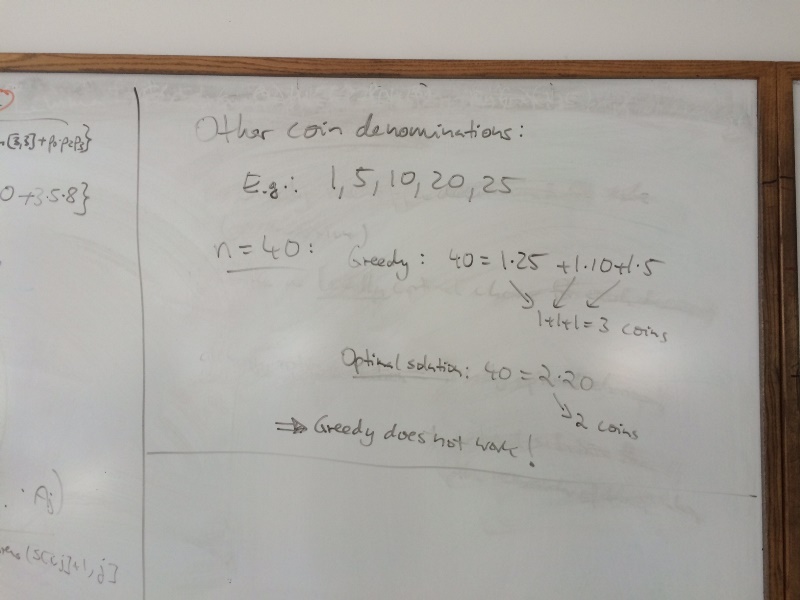 [3,3]+p₀p₂p₃}
0+3·5·8}
Other coin denominations:
E.g.: 1, 5, 10, 20, 25
n=40: Greedy: 40=1·25 +1·10+1·5
1+1+1=3 coins
Optimal solution: 40=2·20
2 coins
⇒ Greedy does not work!
Aj)
(s[i,j]+1,j]